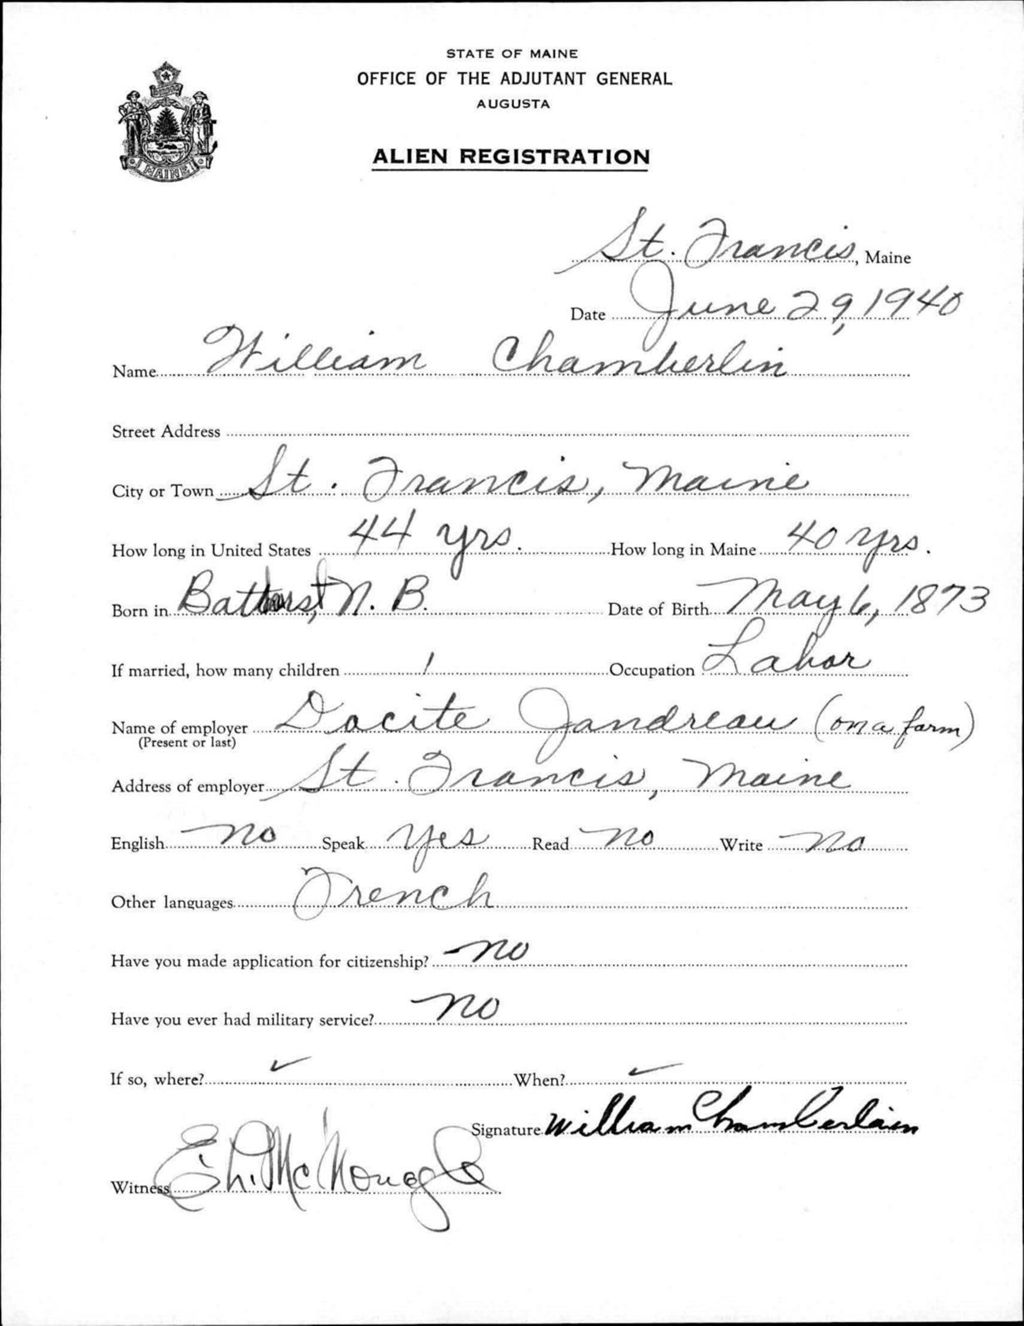 STATE OF MAINE
OFFICE OF THE ADJUTANT GENERAL
AUGUSTA
ALIEN REGISTRATION
MAINE
St. Francis, Maine
Date June 29, 1940
Name William Chamberlin
Street Address
City or Town St. Francis, Maine
How long in United States 44 yrs. How long in Maine 40 yrs.
Born in N. B. Date of Birth May 6, 1873
If married, how many children 1 Occupation Labor
Name of employer Docite Jandreau (on a farm)
(Present or last)
Address of employer St. Francis, Maine
English No Speak Yes Read No Write No
Other languages French
Have you made application for citizenship? No
Have you ever had military service? No
If so, where? ✓ When? ✓
Signature William Chamberlain
Witness McNonagle